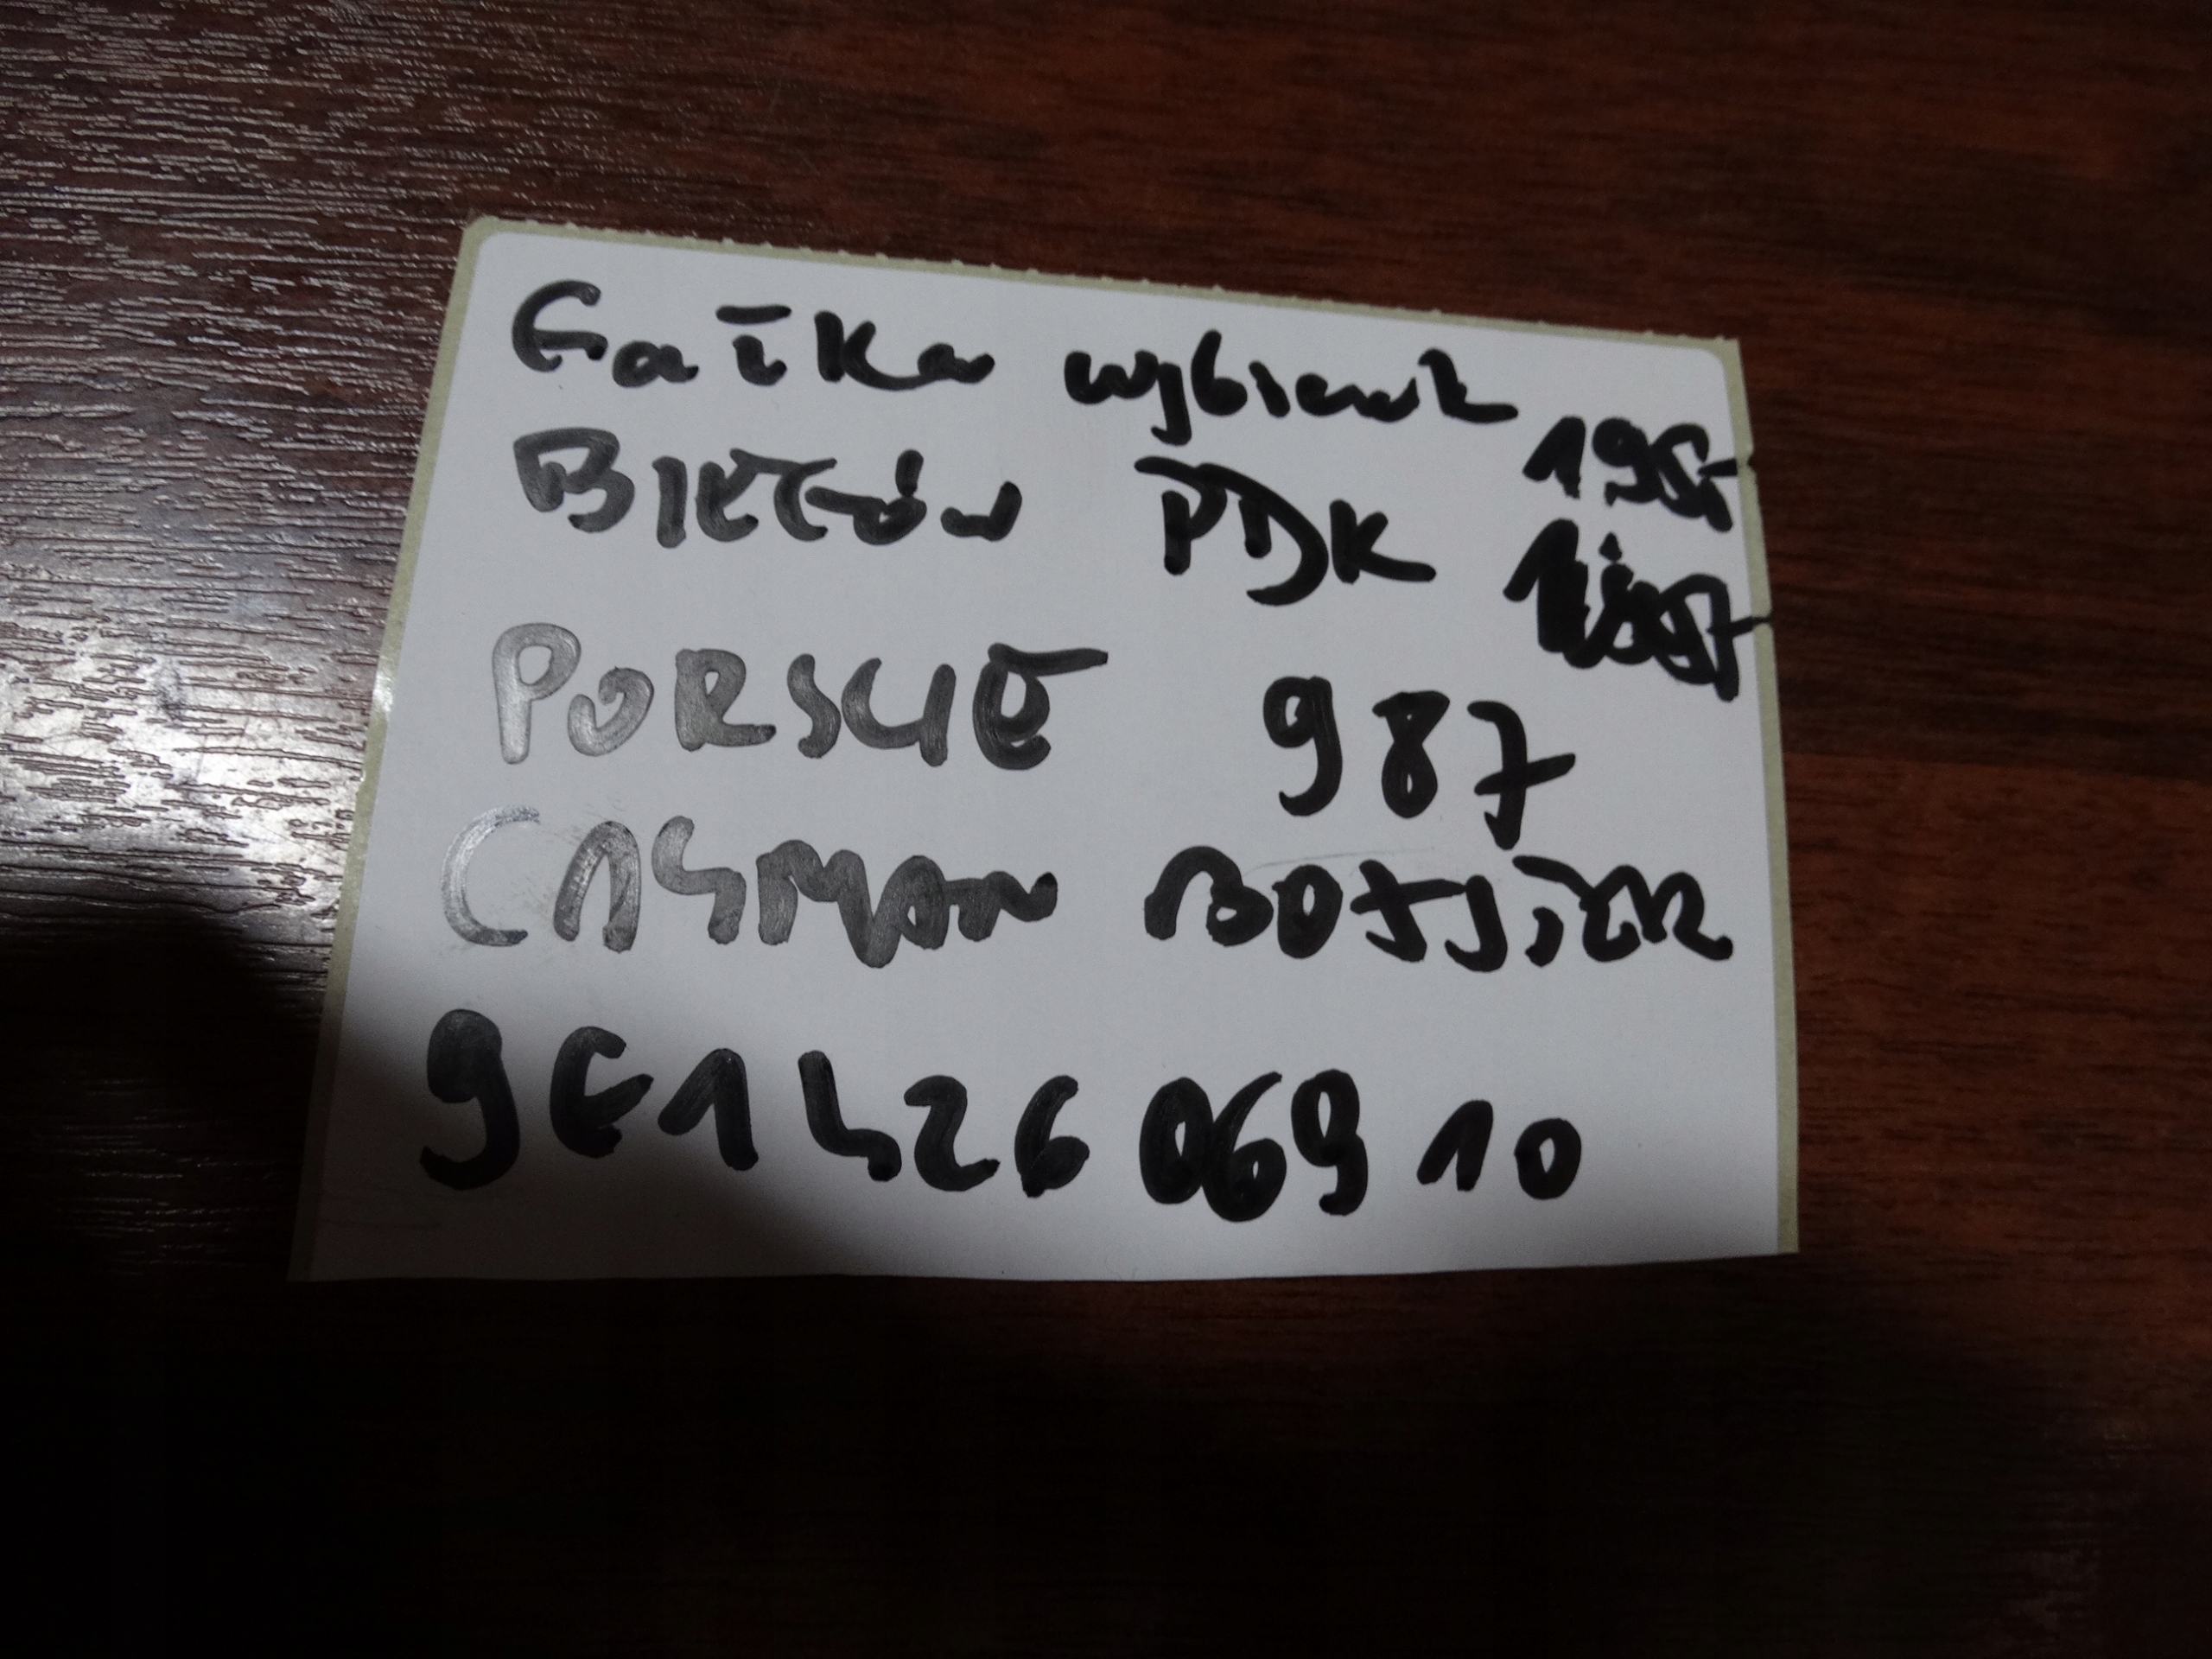 Gałka wybierak
BIEGÓW PDK
PORSCHE 987
CAYMAN BOXSTER
9G1 426 069 10